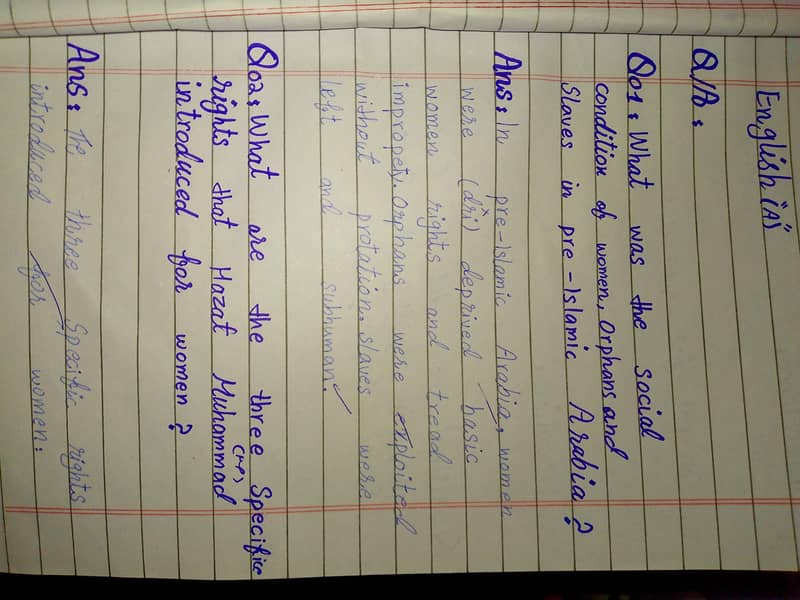 English "(A)"
Q/A:
Q01: What was the social
condition of women, Orphans and
Slaves in pre-Islamic Arabia?
Ans: In pre-Islamic Arabia, women
were (dri) deprived basic
women rights and tread
impropety. Orphans were exploited
without protation. slaves were
left and subhuman.
Q02: What are the three Specific
rights that Hazat Muhammad
introduced for women?
Ans: three Specific rights
introduced for women: